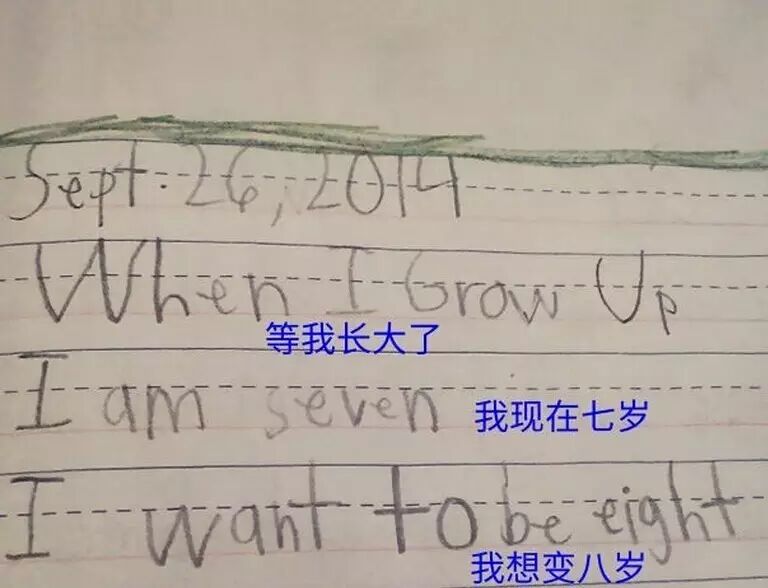 Sept. 26, 2014
When I Grow Up
等我长大了
I am seven
我现在七岁
I want to be eight
我想变八岁